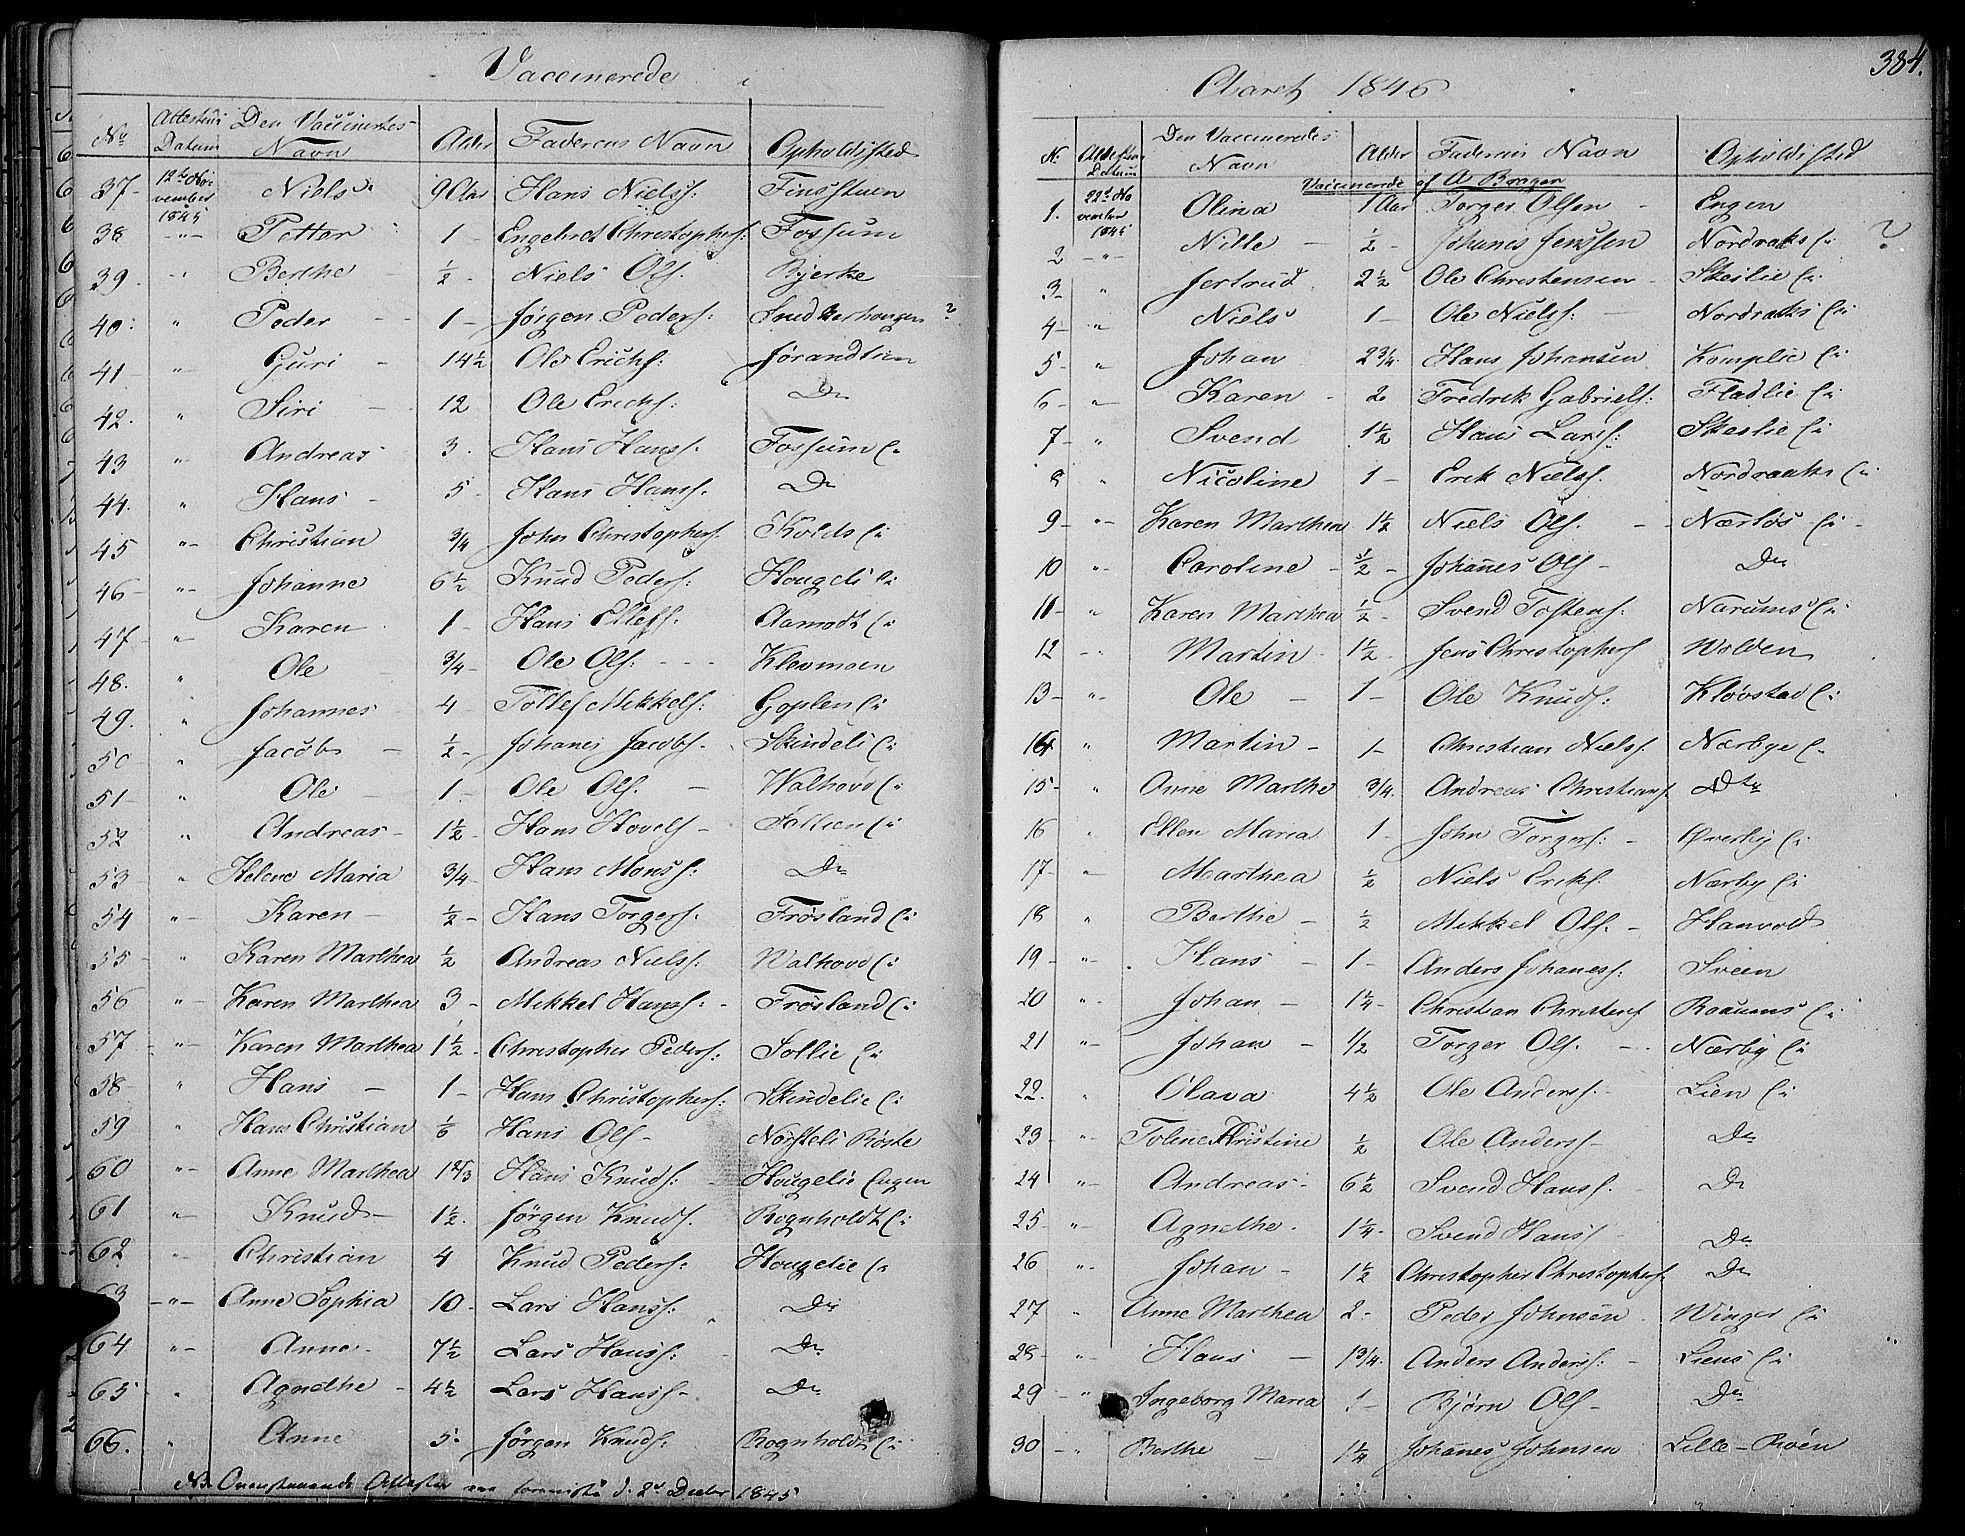 Vaccinerede
No Attestens Datum Den Vaccineredes Navn Alder Faderens Navn Opholdssted
37- 12te November 1845 Niels 9 Aar Hans Nielss: Finsstuen
38 -"- Petter 1- Engebret Christophers: Fossum
39 " Berthe ½- Niels Ols: Bjerke
40: " Peder 1- Jørgen Peders: ?
41 " Guri 14½ Ole Erichs: Jørandlien
42. " Siri 12 Ole Erichs: Do
43 " Andreas 3. Hans Hanss. Fossum Ei
44. " Hans 5- Hans Hanss. Do
45 " Christian ¾ John Christophers. Kolds Ei
46- " Johanne 6½ Knud Peders: Hougeli Ei
47- " Karen 1- Hans Ellefs. Aamodt Ei
48. " Ole ¾- Ole Ols: Klevmoen
49. " Johannes 4- Tollef Mikkels: Goplen Ei
50 " Jacob ½- Johanes Jacobs. Skindeli Ei
51- " Ole 1- Ole Ols. Walhovd Ei
52 " Andreas 1½- Hans Hovels- Ei
53- " Helene Maria ¾- Hans Monss: Do
54 " Karen ½- Hans Torgers. Frøsland Ei
55- " Karen Marthea ½ Andreas Nielss: Walhovd Ei
56 " Karen Marthea 3- Mikkel Hanss:- Frøsland Ei
57- " Karen Marthea 1½- Christopher Peders: Sollie Ei
58- " Hans 1- Hans Christophers: Skindelie Ei
59 " Hans Christian 1/6 Hans Ols- Nørsteli Røste
60 " Anne Marthea 1 2/3 Hans Knuds: Hougelie Engen
61 " Knud- 1½. Jørgen Knuds. Rognholdt Ei
62 " Christian 4 Knud Peders: Hougelie Ei
63 -"- Anne Sophia 10- Lars Hanss: Do
64 " Anne 7½ Lars Hanss: Do
65 " Agnethe 4½ Lars Hanss- Do
66. " Anne 5- Jørgen Knuds: Rognholdt Ei
NB Ovenstaaende Attester ere d. 2d Decbr 1845
384.
Aaret 1846
N: Attestens Datum Den Vaccineredes Navn Alder Faderens Navn Opholdssted
Vaccinerede af A Bragen
1. 22d November 1845 Olina 1 Aar Torger Olsen Engen
2 -"- Nille ½- Johanes Jenssen Nordraaks Ei ?
3- " Jertrud 2½ Ole Christensen Skeslie Ei
4- " Niels 1- Ole Nielss: Nordraaks Ei
5- " Johan 2¾. Hans Johansen Komplie Ei
6- " Karen 2 Fredrik Gabriels: Fladlie Ei
7- " Svend 1½ Hans Larss: Skeslie Ei
8 " Nicoline 1- Erik Nielss. Nordraaks Ei
9- " Karen Marthea 1½ Niels Ols. Nærløs Ei
10 " Caroline ½- Johannes Ols- Do
11- " Karen Marthea ½- Svend Tostens: Narums Ei
12 " Martin 1½- Jens Christophers Wolden
13- " Ole 1- Ole Knuds: Kløvstad Ei
14 " Martin- 1- Christian Nielss. Nærbye Ei
15- " Anne Marthe ¾. Andreas Christians Do
16 " Ellen Maria 1- John Torgers: Øverby Ei
17- " Marthea ½ Niels Eriks. Nærby Ei
18 " Berthe- ½ Mikkel Ols.- Hanvold
19- " Hans 1- Anders Johaness: Sveen
20 " Johan 1¼- Christian Christens Raaums Ei
21 " Johan ½ Torger Ols. Nærby Ei
22. " Olava 4½ Ole Anderss. Lien Ei
23- " Toline Christine ½ Ole Anderss- Do
24 " Andreas- 6½ Svend Hanss. Do
25- " Agnethe. 1¼- Svend Hanss Do
26 " Johan- 1½ Christopher Christophers. Do
27 " Anne Marthea 2- Peder Johnsen Winger Ei
28- " Hans 1¾. Anders Anderss:- Liens Ei
29 " Ingeborg Maria 1- Bjørn Ols- Do
30 " Berthe 1¼ Johanes Johnsen Lille-Roen